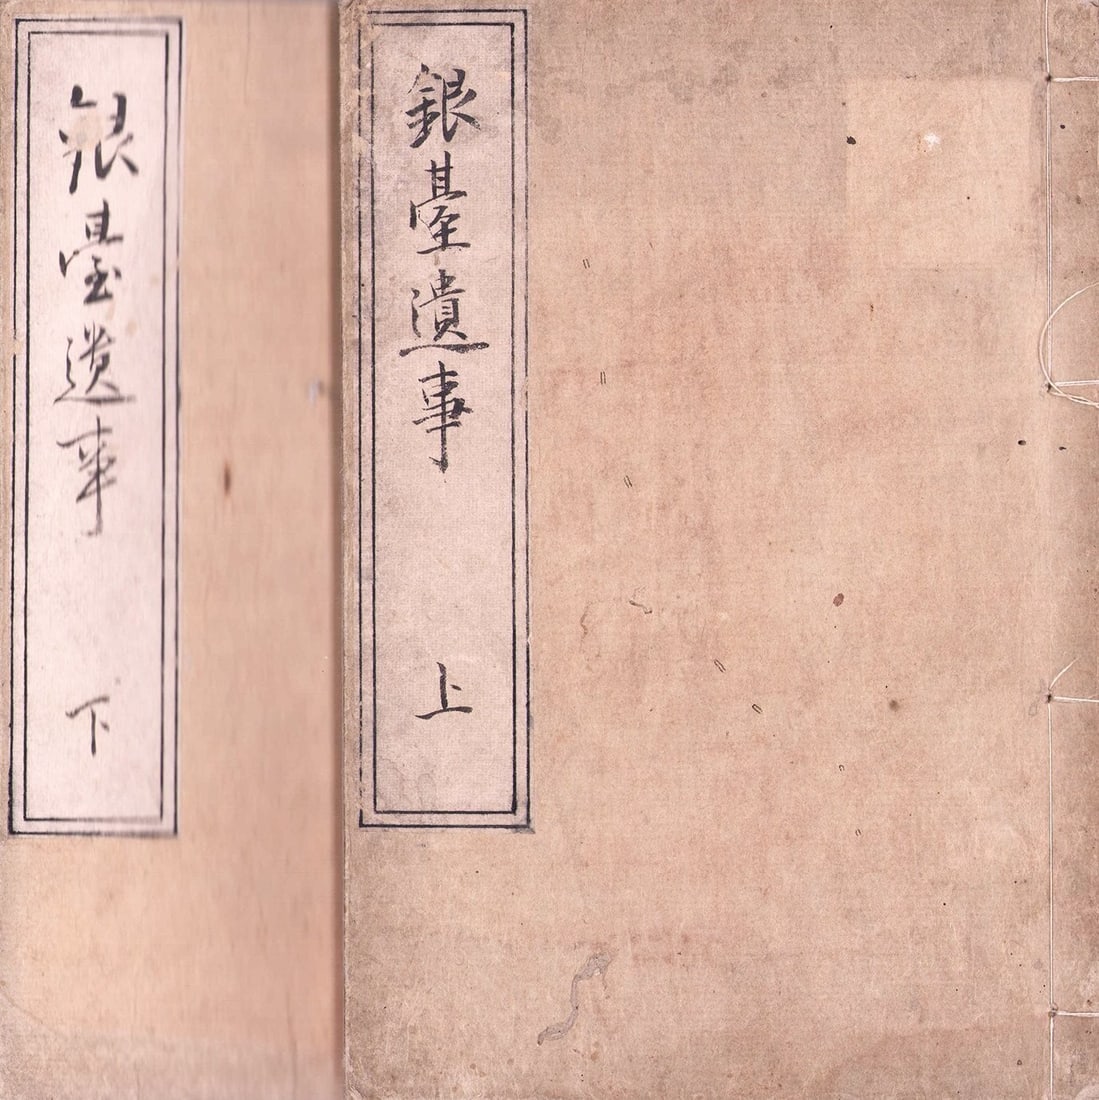 銀臺遺事
上
銀臺遺事
下